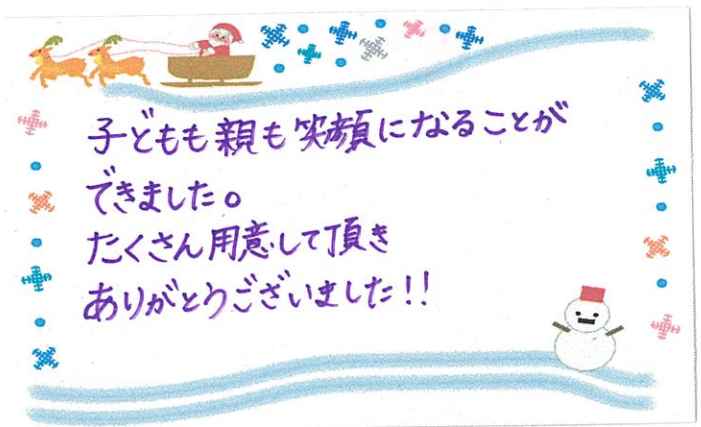 子どもも親も笑顔になることが
できました。
たくさん用意して頂き
ありがとうございました!!